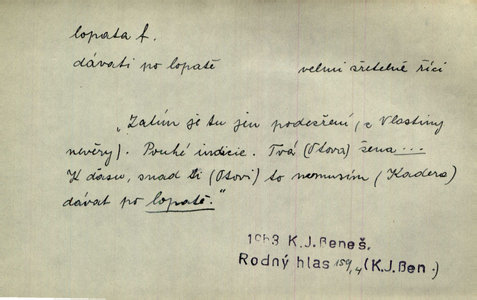 lopata f.
dávati po lopatě velmi zřetelně říci
„Zatím je tu jen podezření, (z Vlastiny
nevěry). Pouhé indicie. Tvá (Otova) žena...
K ďasu, snad ti (Otovi) to nemusím (Kadera)
dávat po lopatě."
1963 K.J.Beneš.
Rodný hlas 159,4 (K.J.Ben.)